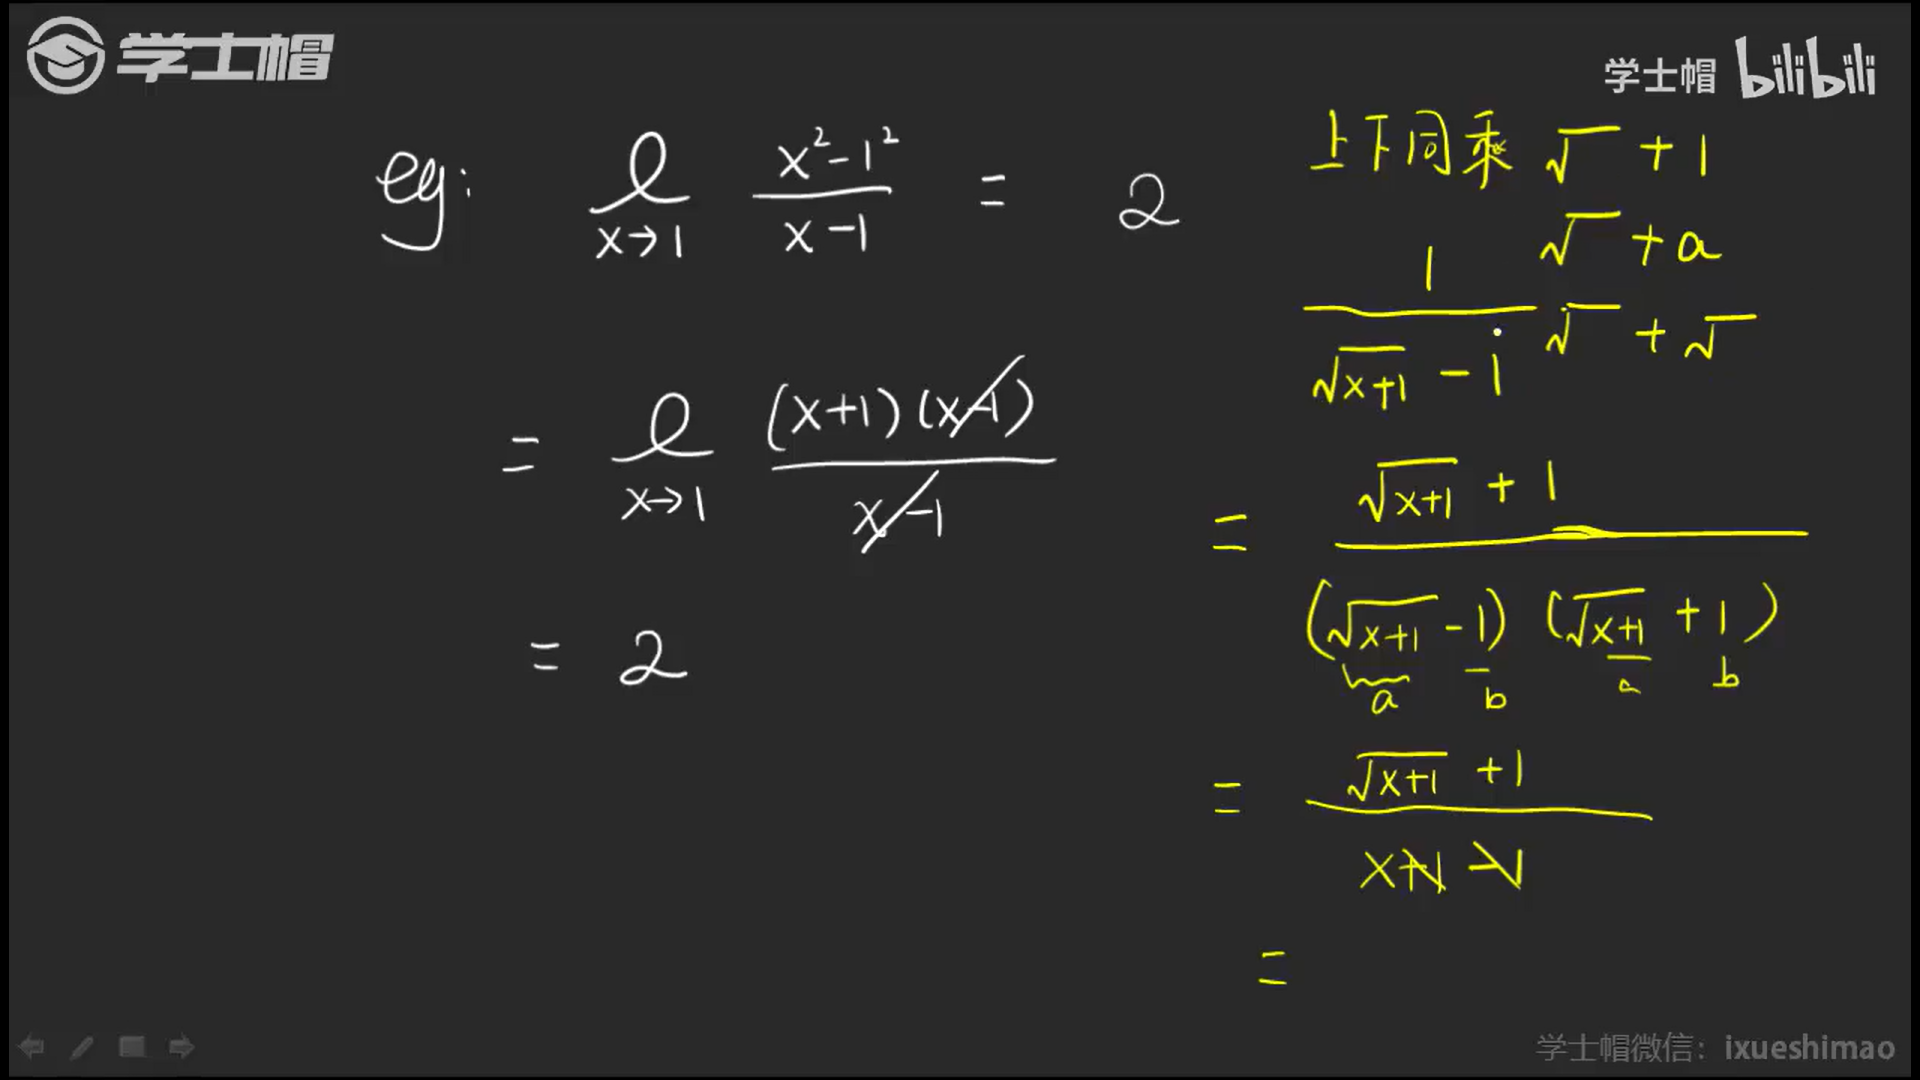 学士帽
学士帽 bilibili
eg: l x→1 x²-1² / x-1 = 2
= l x→1 (x+1)(x-1) / x-1
= 2
上下同乘 √ +1
√ +a
√ +√
1 / √x+1 - 1
= √x+1 +1 / (√x+1 -1) (√x+1 +1)
a b a b
= √x+1 +1 / x+1 -1
=
学士帽微信：ixueshimao